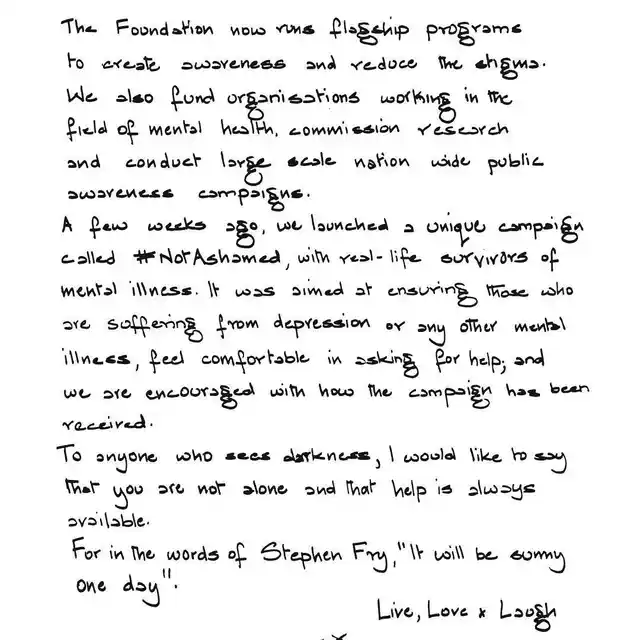 The Foundation now runs flagship programs
to create awareness and reduce the stigma.
We also fund organisations working in the
field of mental health, commission research
and conduct large scale nation wide public
awareness campaigns.
A few weeks ago, we launched a unique campaign
called #NotAshamed, with real-life survivors of
mental illness. It was aimed at ensuring those who
are suffering from depression or any other mental
illness, feel comfortable in asking for help; and
we are encouraged with how the campaign has been
received.
To anyone who sees darkness, I would like to say
that you are not alone and that help is always
available.
For in the words of Stephen Fry, "It will be sunny
one day".
Live, Love x Laugh